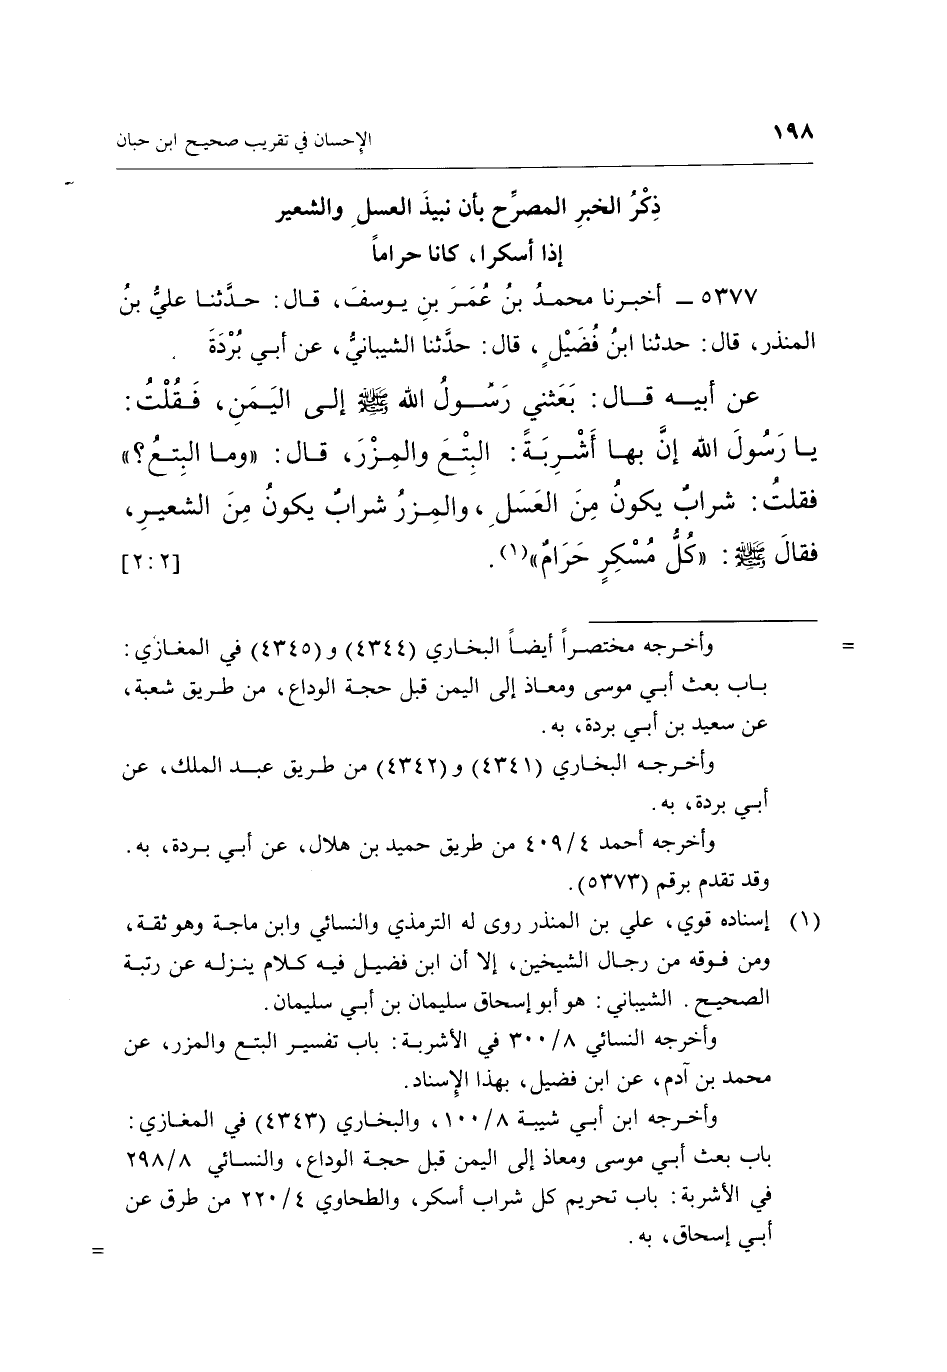 ١٩٨
الإحسان في تقريب صحيح ابن حبان
ذِكْرُ الخبرِ المصرِّح بأن نبيذَ العسلِ والشعير
إذا أسكرا، كانا حراماً
٥٣٧٧ ــ أخبرنا محمدُ بنُ عُمَرَ بنِ يوسفَ، قال: حدَّثنا عليُّ بنُ
المنذر، قال: حدثنا ابنُ فُضَيْلٍ، قال: حدَّثنا الشيبانيُّ، عن أبي بُرْدَةَ
عن أبيه قال: بَعَثني رَسُولُ الله ﷺ إلى اليَمَنِ، فَقُلْتُ:
يا رَسُولَ الله إنَّ بها أَشْرِبَةً: البِتْعَ والمِزْرَ، قال: «وما البِتعُ؟»
فقلتُ: شرابٌ يكونُ مِنَ العَسَلِ، والمِزرُ شرابٌ يكونُ مِنَ الشعيرِ،
فقالَ ﷺ: «كُلُّ مُسْكِرٍ حَرَامٌ»(١). [٢:٢]
= وأخرجه مختصراً أيضاً البخاري (٤٣٤٤) و(٤٣٤٥) في المغازي:
باب بعث أبي موسى ومعاذ إلى اليمن قبل حجة الوداع، من طريق شعبة،
عن سعيد بن أبي بردة، به.
وأخرجه البخاري (٤٣٤١) و(٤٣٤٢) من طريق عبد الملك، عن
أبي بردة، به.
وأخرجه أحمد ٤٠٩/٤ من طريق حميد بن هلال، عن أبي بردة، به.
وقد تقدم برقم (٥٣٧٣).
(١) إسناده قوي، علي بن المنذر روى له الترمذي والنسائي وابن ماجة وهو ثقة،
ومن فوقه من رجال الشيخين، إلا أن ابن فضيل فيه كلام ينزله عن رتبة
الصحيح. الشيباني: هو أبو إسحاق سليمان بن أبي سليمان.
وأخرجه النسائي ٣٠٠/٨ في الأشربة: باب تفسير البتع والمزر، عن
محمد بن آدم، عن ابن فضيل، بهذا الإسناد.
وأخرجه ابن أبي شيبة ١٠٠/٨، والبخاري (٤٣٤٣) في المغازي:
باب بعث أبي موسى ومعاذ إلى اليمن قبل حجة الوداع، والنسائي ٢٩٨/٨
في الأشربة: باب تحريم كل شراب أسكر، والطحاوي ٢٢٠/٤ من طرق عن
أبي إسحاق، به.
=